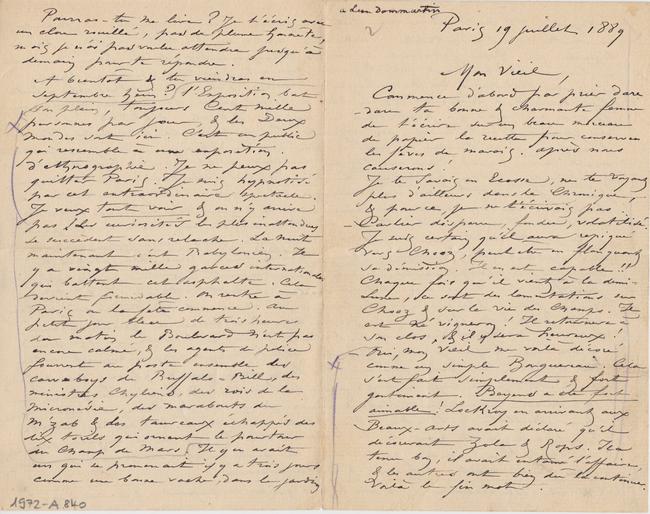 a Léon Dommartin
Paris 19 juillet 1889
Mon Vieil,
Commence d'abord par prier dare
dare ta bonne & charmante femme
de t'écrire sur un beau morceau
de papier la recette pour conserver
les fèves de marais. après nous
causerons!
Je te savais en Ecosse, ne te voyant
plus d'ailleurs dans la Chronique,
& parce que je ne t'écrivais pas
Carlier disparu, fondu, volatilisé.
Je suis certain qu'il aura repiqué
vers Chooz, peut-être en flanquant
sa démission. Il en est capable!!
Chaque fois qu'il vient à la demi-
Lune, ce sont des lamentations sur
Chooz & sur la vie des Champs. Il
est né vigneron! Il retournera à
son clos, & il y sera heureux!
– Oui mon vieil me voilà décoré
comme un simple Bouguereau, Cela
s'est fait simplement & fort
gentiment. Bayard a été fort
aimable: Lockroy en arrivant aux
Beaux-Arts avait déclaré qu'il
décorerait Zola & Rops. Il a
tenu bon, il avait entamé l'affaire,
& les autres ont bien dû la continuer.
Voilà le fin mot.
Pourras-tu me lire? Je t'écris avec
un clou rouillé, pas de plume Humboldt,
mais je n'ai pas voulu attendre jusqu'à
demain pour te répondre.
A bientôt & tu viendras en
septembre hein? l'Exposition bat
son plein, toujours Cent mille
personnes par jour, & les Deux
mondes sont ici. C'est un public
qui ressemble à une exposition
d'ethnographie. Je ne peux pas
quitter Paris. Je suis hypnotisé
par cet extraordinaire spectacle.
Je veux tout voir & on n'y arrive
pas! Les curiosités les plus inattendues
se succèdent sans relache. La nuit
maintenant c'est Babylonien. Il
y a vingt mille garces internationales
qui battent cet asphalte. Cela
devient formidable. On rentre à
Paris où la fête commence. Au
petit jour blanc de trois heures
du matin le Boulevard n'est pas
encore calmé, & les agents de police
fourrent au poste ensemble des
cowboys de Buffalo-Bill, des
ministres Chylino, des rois de la
Micronésie, des marabouts du
M'zab & des taureaux echappés des
dix toriles qui ornent le pourtour
du Champ de Mars. Il y en avait
un qui se promenait il y a trois jours
comme une bonne vache dans le jardin
1972-A 840